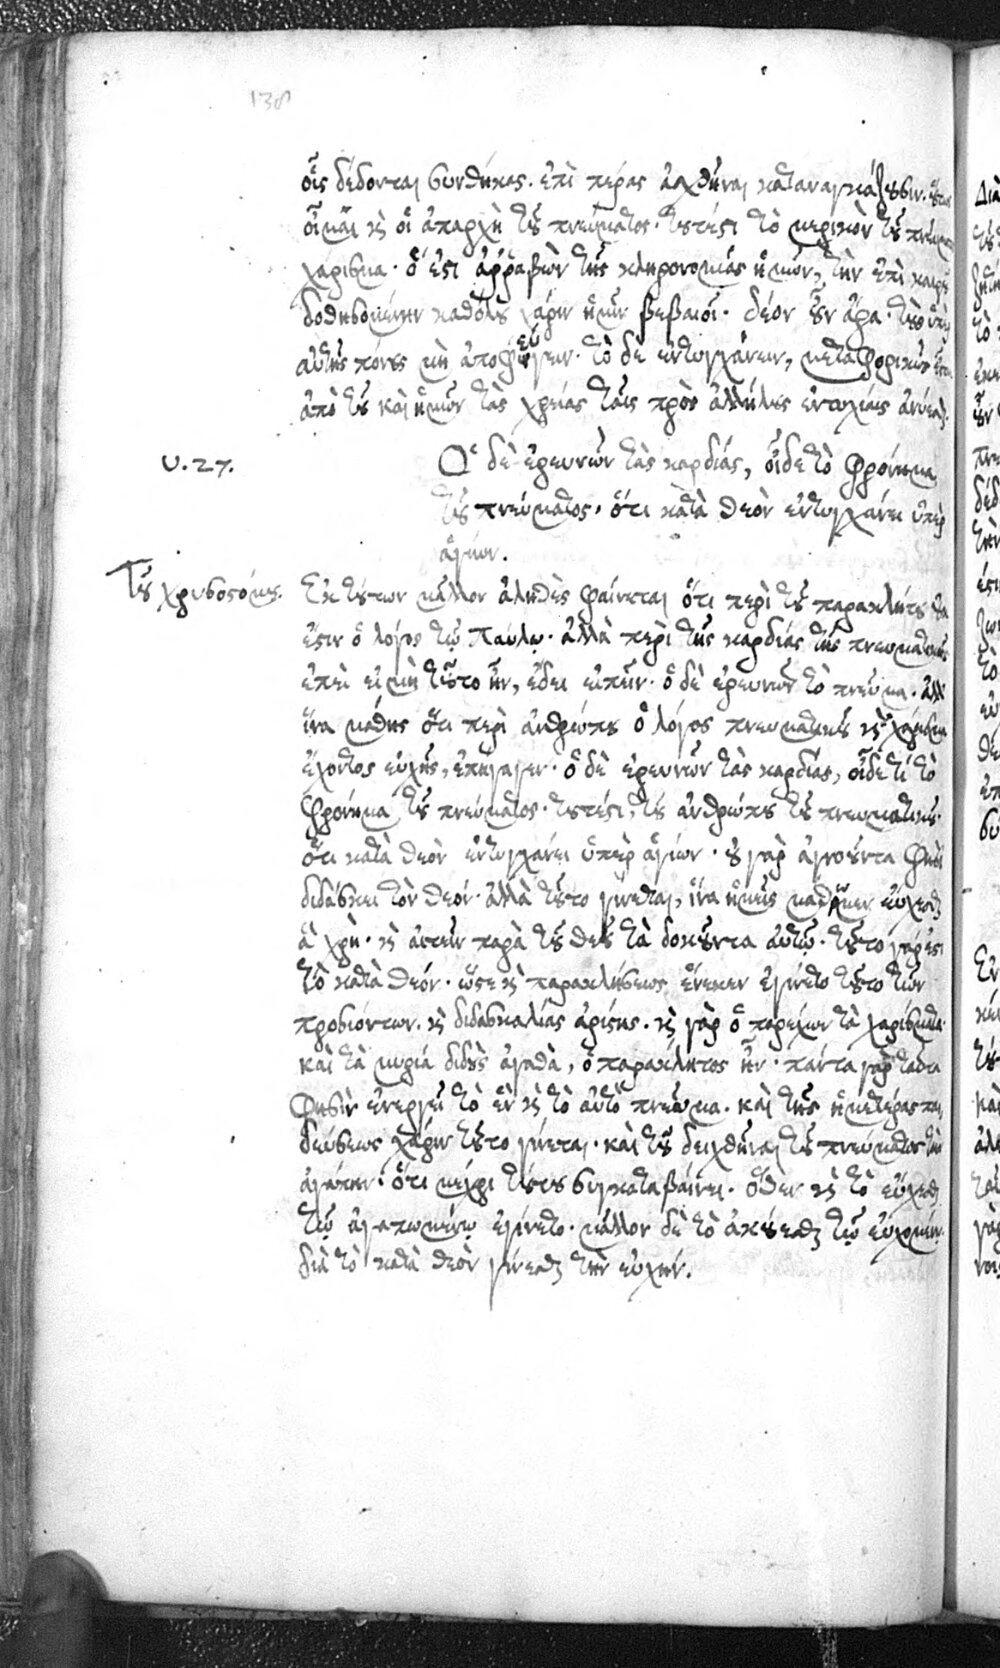 138
οἷς δέδονται συνθήκας. ἐπὶ πέρας ἀχθῆναι καταναγκάζουσιν.
οἶμαι κ οἱ ἀπαρχὴ τοῦ πνεύματος. τουτέστι τὸ μερικὸν τοῦ
χάρισμα. ὅ ἐστι ἀῤῥαβὼν τῆς κληρονομίας ἡμῶν, τὴν ἐπὶ
δοθησομένην καθόλου χάριν ἡμῖν βεβαιοῖ. δέον οὖν ἄρα. τοὺς ὑπὲρ
αὐτῆς πόνους μὴ ἀποφεύγειν. τὸ δε ἐντυγχάνειν, μεταφορικῶς
ἀπὸ τοῦ καὶ ἡμῶν τὰς χρείας ταῖς πρὸς ἀλλήλους ἐντυχίαις
υ. 27.
Ὁ δὲ ἐρευνῶν τὰς καρδίας, οἶδε τὸ φρόνημα
τοῦ πνεύματος. ὅτι κατὰ θεὸν ἐντυγχάνει ὑπὲρ
ἁγίων.
Τοῦ χρυσοστόμου.
Ἐκ τούτων μᾶλλον ἀληθὲς φαίνεται ὅτι περὶ τοῦ παρακλήτου
ἐστιν ὁ λόγος τῷ Παύλῳ. ἀλλὰ περὶ τῆς καρδίας τῆς πνευματικῆς
ἐπεὶ εἰ μὴ τοῦτο ἦν, ἔδει εἰπεῖν. ὁ δὲ ἐρευνῶν τὸ πνεῦμα. ἀλλ
ἵνα μάθῃς ὅτι περὶ ἀνθρώπου ὁ λόγος πνευματικοῦ κ χάρισμα
ἔχοντος εὐχῆς, ἐπήγαγεν. ὁ δὲ ἐρευνῶν τὰς καρδίας, οἶδε τί τὸ
φρόνημα τοῦ πνεύματος. τουτέστι, τοῦ ἀνθρώπου τοῦ πνευματικοῦ.
ὅτι κατὰ θεὸν ἐντυγχάνει ὑπὲρ ἁγίων. οὐ γὰρ ἀγνοοῦντα φησὶ
διδάσκει τὸν θεόν. ἀλλὰ τοῦτο γίνεται, ἵνα ἡμεῖς μάθωμεν εὔχεσθαι
ἃ χρὴ. κ αἰτεῖν παρὰ τοῦ θεοῦ τὰ δοκοῦντα αὐτῷ. τοῦτο γάρ ἐστι
τὸ κατὰ θεόν. ὥστε κ παρακλήσεως ἕνεκεν ἐγίνετο τοῦτο τῶν
προσιόντων. κ διδασκαλίας ἀρίστης. κ γὰρ ὁ παρέχων τὰ χαρίσματα
καὶ τὰ μυρία διδοὺς ἀγαθὰ, ὁ παράκλητος ἦν. πάντα γὰρ ταῦτα
φησὶν ἐνεργεῖ τὸ ἓν κ τὸ αὐτὸ πνεῦμα. καὶ τῆς ἡμετέρας παι
δεύσεως χάριν τοῦτο γίνεται. καὶ τοῦ δειχθῆναι τοῦ πνεύματος τὴν
ἀγάπην. ὅτι μέχρι τούτου συγκαταβαίνει. ὅθεν κ τὸ εὔχεσθαι
τῷ ἀγαπωμένῳ ἐγίνετο. μᾶλλον δὲ τὸ ἀκούεσθαι τῷ εὐχομένῳ.
διὰ τὸ κατὰ θεὸν γίνεσθαι τὴν εὐχήν.